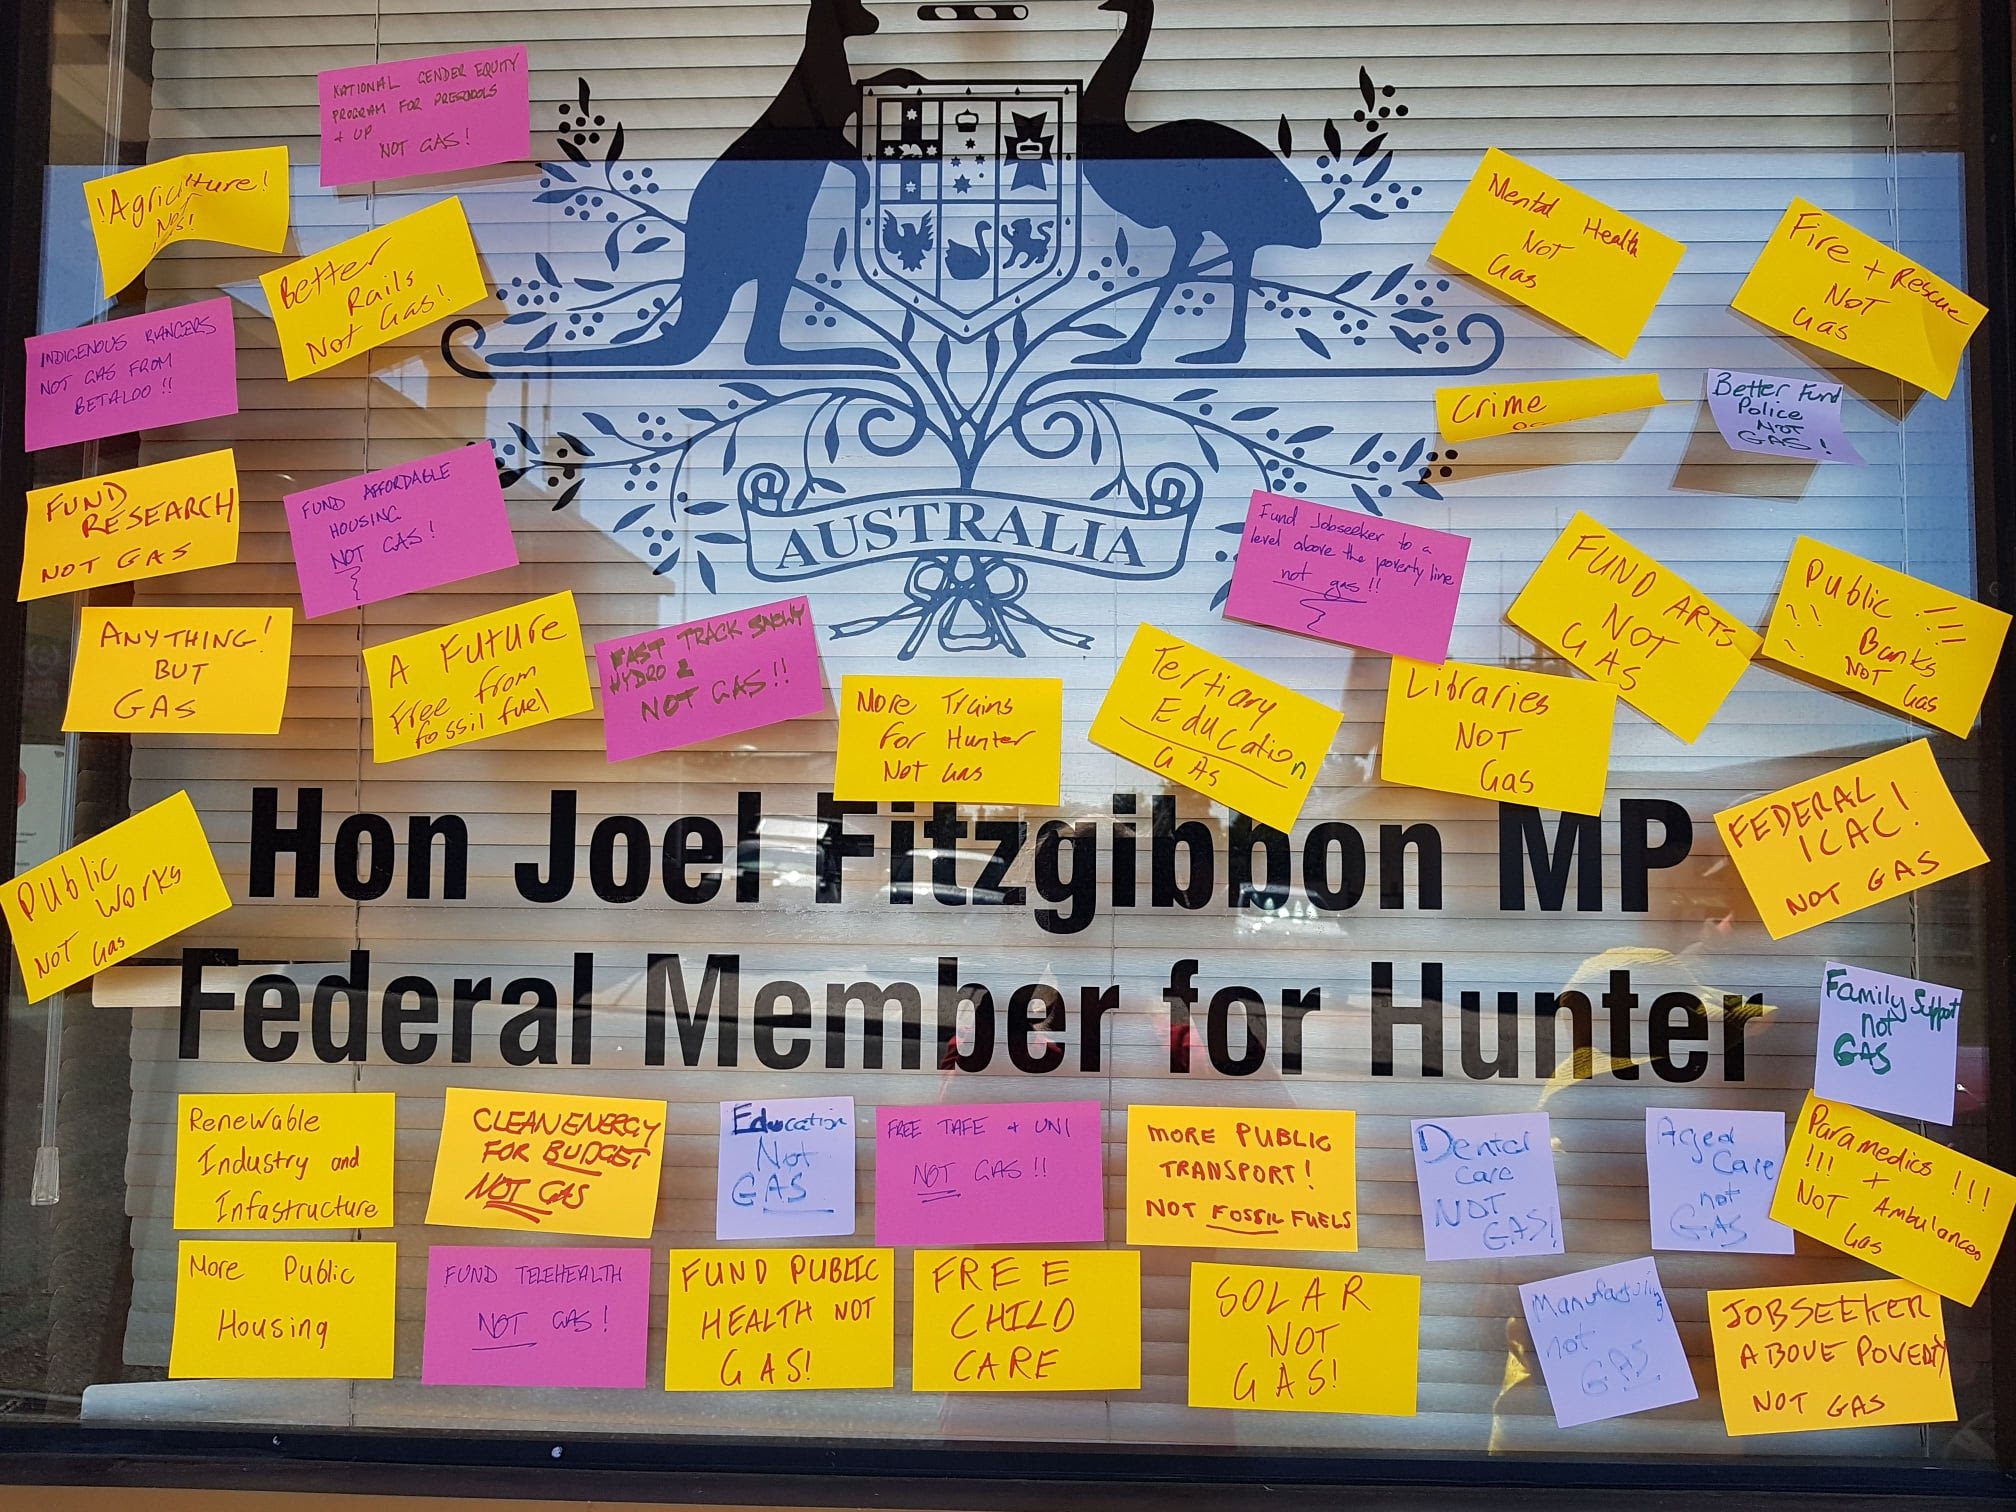 NATIONAL GENDER EQUITY
PROGRAM FOR PRESCHOOLS
+ UP
NOT GAS!
!Agriculture!
Better
Rails
Not Gas!
Mental Health
NOT
Gas
Fire + Rescue
NOT
Gas
INDIGENOUS RANGERS
NOT GAS FROM
BETALOO!!
Crime
Better Fund
Police
NOT
GAS!
FUND
RESEARCH
NOT GAS
FUND AFFORDABLE
HOUSING
NOT GAS!
AUSTRALIA
Fund Jobseeker to a
level above the poverty line
not gas!!
FUND ARTS
NOT
GAS
Public !!!
!! Banks
NOT Gas
ANYTHING!
BUT
GAS
A FUTURE
Free from
fossil fuel
FAST TRACK SNOWY
HYDRO 2
NOT GAS!!
More Trains
for Hunter
Not Gas
Tertiary
Education
GAs
Libraries
NOT
Gas
FEDERAL
ICAC!
NOT GAS
Public
Works
NOT Gas
Hon Joel Fitzgibbon MP
Federal Member for Hunter
Family Support
not
GAS
Renewable
Industry and
Infastructure
CLEAN ENERGY
FOR BUDGET
NOT GAS
Education
Not
GAS
FREE TAFE + UNI
NOT GAS!!
MORE PUBLIC
TRANSPORT!
NOT FOSSIL FUELS
Dental
Care
NOT
GAS!
Aged
Care
not
GAS
Paramedics !!!
!!! + Ambulances
NOT
Gas
More Public
Housing
FUND TELEHEALTH
NOT GAS!
FUND PUBLIC
HEALTH NOT
GAS!
FREE
CHILD
CARE
SOLAR
NOT
GAS!
Manufacturing
not
GAS
JOBSEEKER
ABOVE POVERTY
NOT GAS